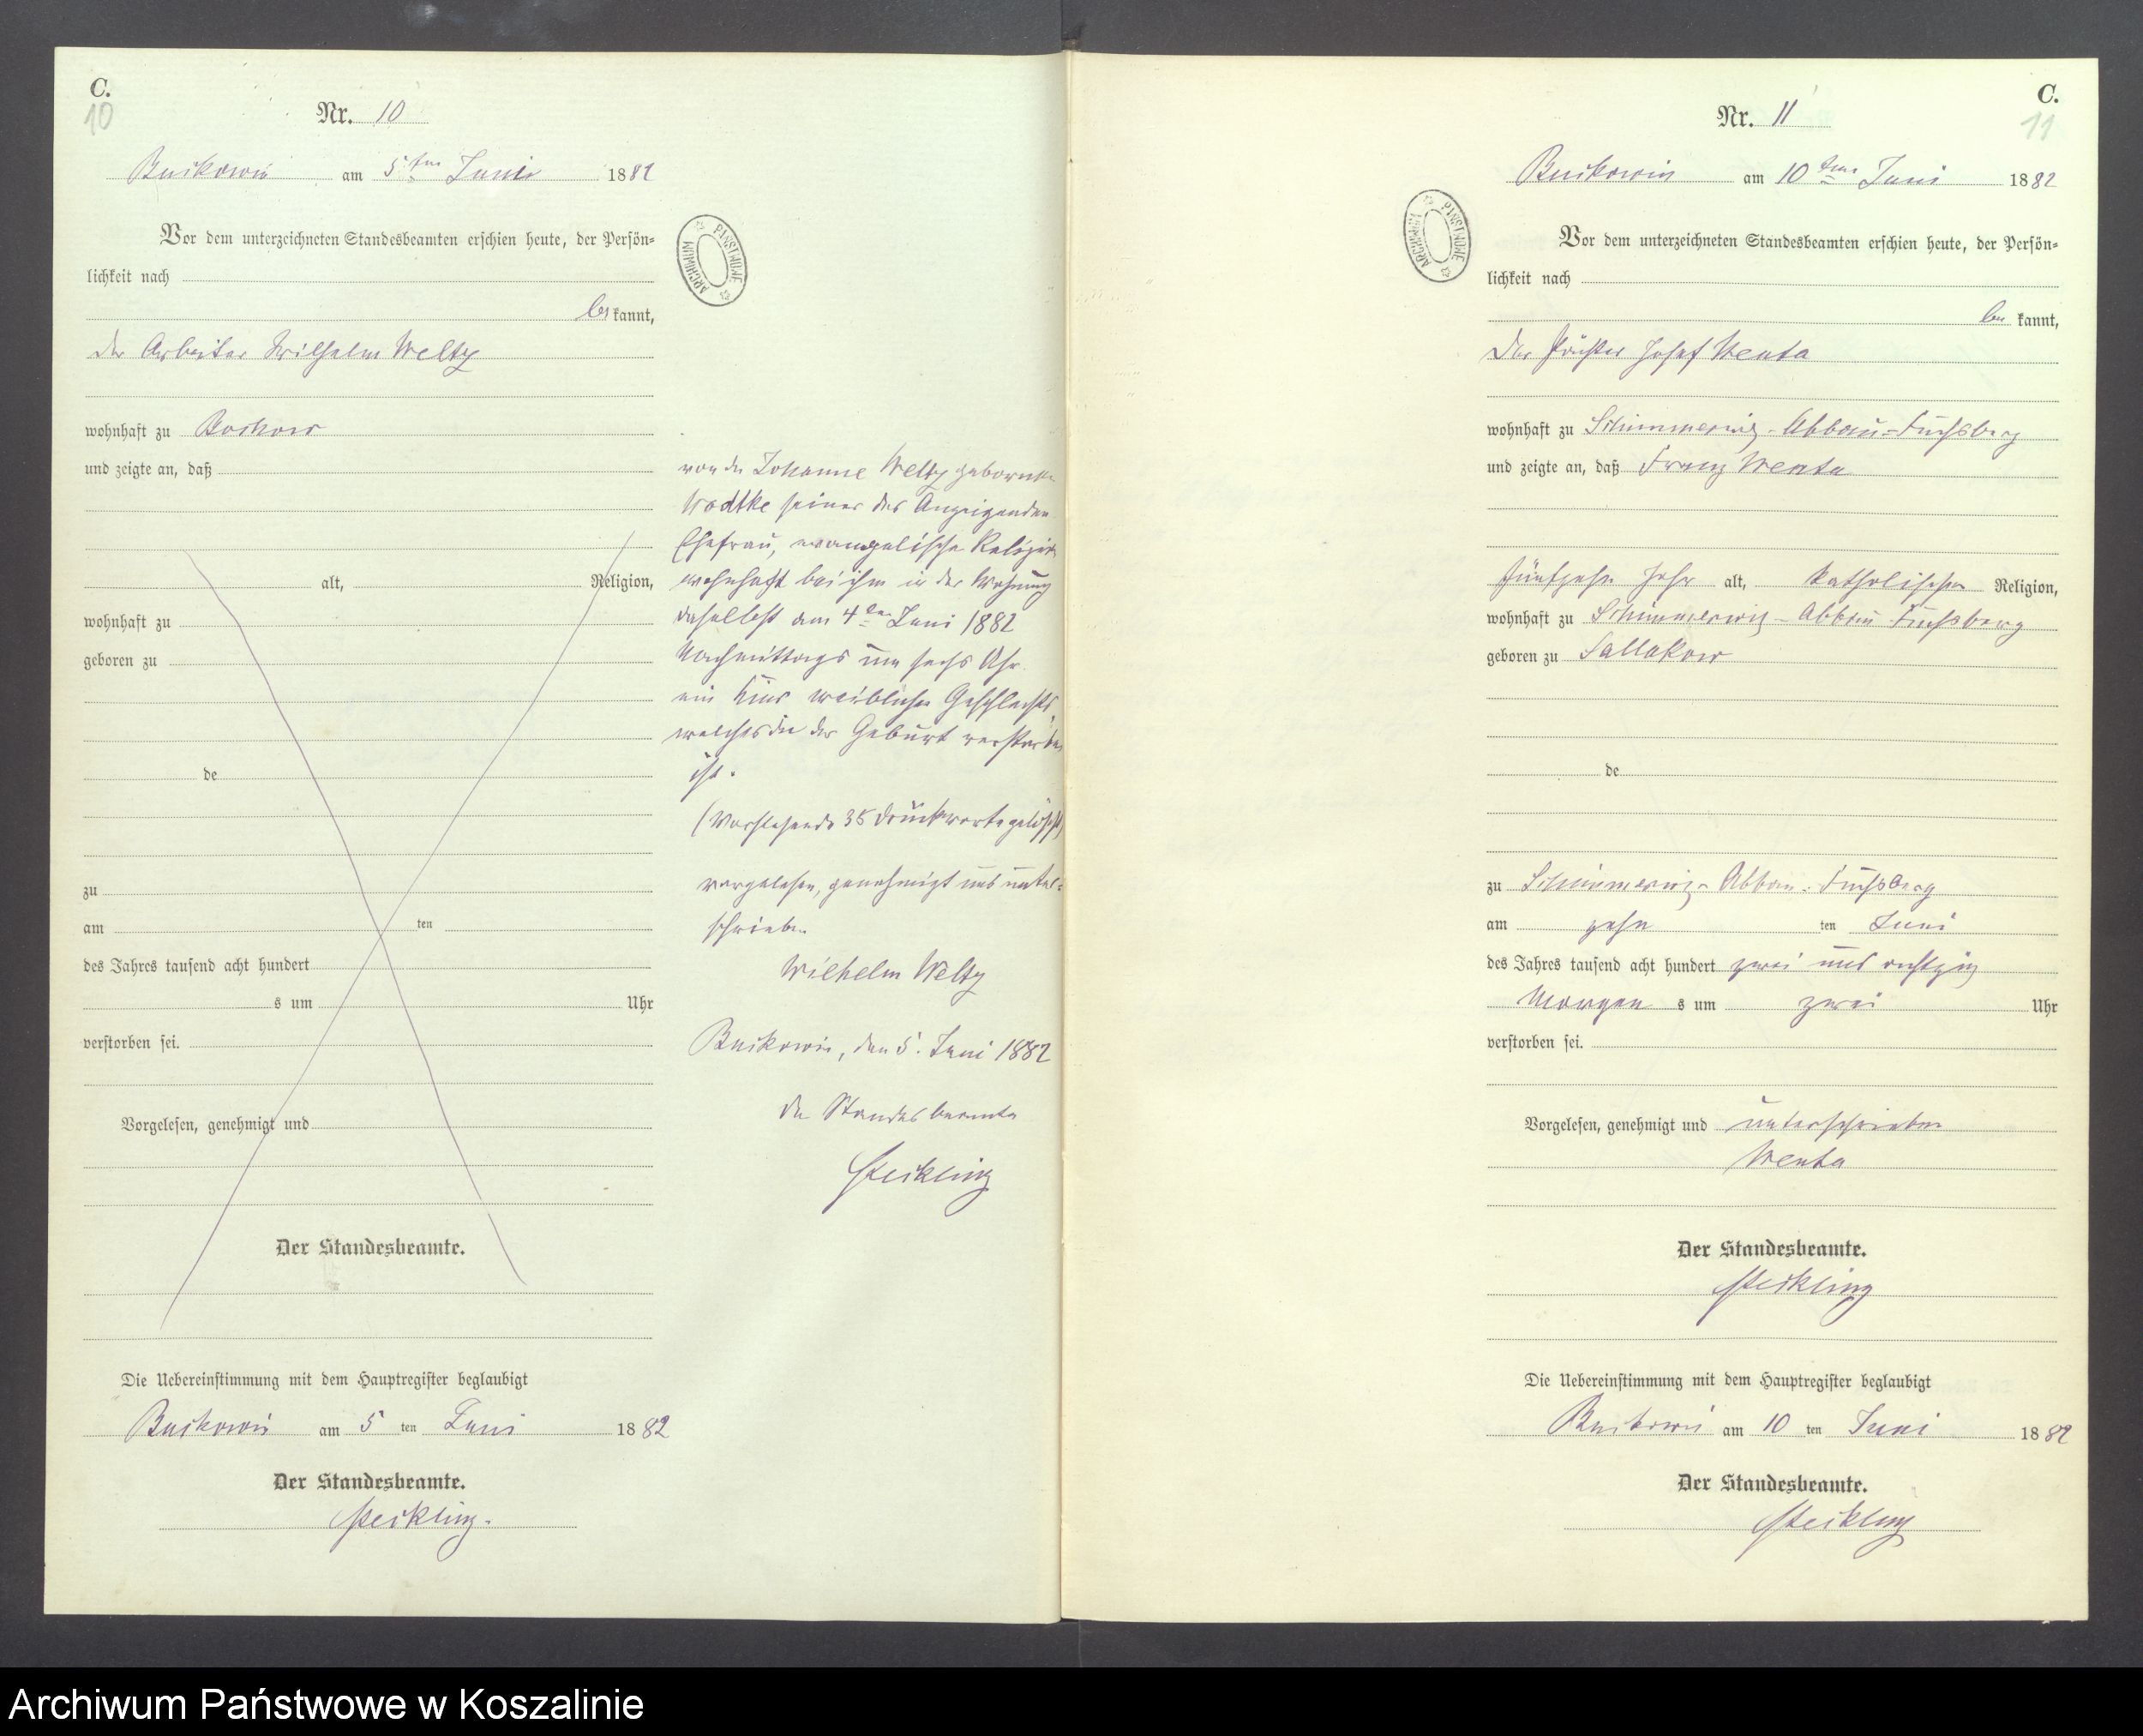 C.
10
Nr. 10
Buckowin am 5ten Juni 1882
Vor dem unterzeichneten Standesbeamten erschien heute, der Persön=
lichkeit nach
be kannt,
der Arbeiter Wilhelm Weltz
wohnhaft zu Boskow
und zeigte an, daß
alt, Religion,
wohnhaft zu
geboren zu
de
zu
am ten
des Jahres tausend acht hundert
s um Uhr
verstorben sei.
Vorgelesen, genehmigt und
Der Standesbeamte.
Die Uebereinstimmung mit dem Hauptregister beglaubigt
Buckowin am 5 ten Juni 1882
Der Standesbeamte.
Steckling.
ARCHIWUM PAŃSTWOWE
von der Johanne Weltz geborene
Wodtke seiner des Anzeigenden
Ehefrau, evangelischer Religion
wohnhaft bei ihm in der Wohnung
daselbst am 4ten Juni 1882
Nachmittags um sechs Uhr
ein Kind weiblichen Geschlechts,
welches in der Geburt verstorben
ist.
(Vorstehende 35 Druckworte gelöscht)
vorgelesen, genehmigt und unter=
schrieben
Wilhelm Weltz
Buckowin, den 5. Juni 1882
Der Standesbeamte
Steckling
C.
11
Nr. 11
Buckowin am 10ten Juni 1882
ARCHIWUM PAŃSTWOWE
Vor dem unterzeichneten Standesbeamten erschien heute, der Persön=
lichkeit nach
be kannt,
Der Pächter Josef Wenta
wohnhaft zu Schimmerwitz-Abbau-Fuchsberg
und zeigte an, daß Franz Wenta
fünfzehn Jahr alt, katholischer Religion,
wohnhaft zu Schimmerwitz-Abbau Fuchsberg
geboren zu Sallakow
de
zu Schimmerwitz-Abbau-Fuchsberg
am zehn ten Juni
des Jahres tausend acht hundert zwei und achtzig
Morgen s um zwei Uhr
verstorben sei.
Vorgelesen, genehmigt und unterschrieben
Wenta
Der Standesbeamte.
Steckling
Die Uebereinstimmung mit dem Hauptregister beglaubigt
Buckowin am 10 ten Juni 1882
Der Standesbeamte.
Steckling
Archiwum Państwowe w Koszalinie